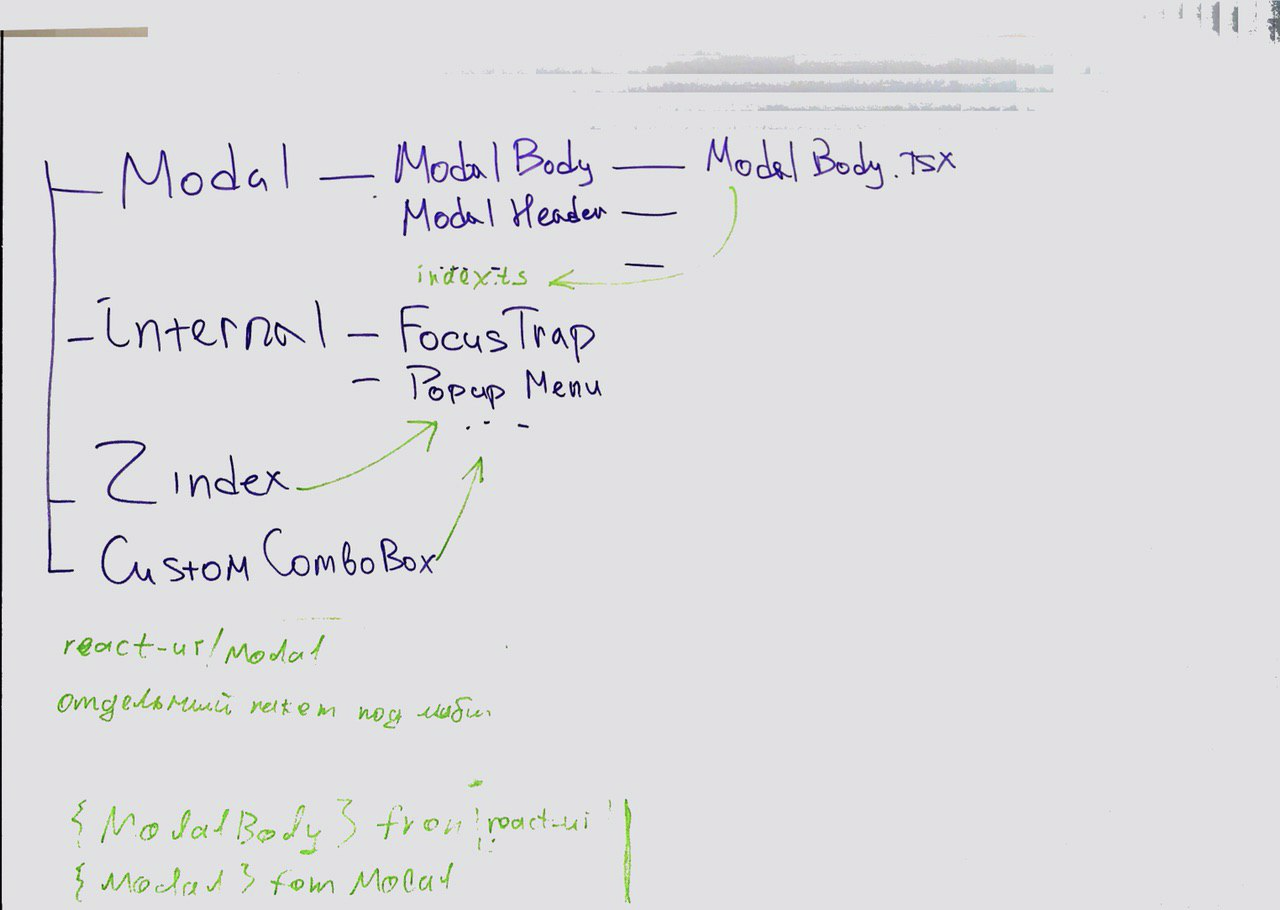 Modal — Modal Body — Modal Body.tsx
Modal Header —
index.ts
internal — FocusTrap
- Popup Menu
...
Z index
Custom ComboBox
react-ui/Modal
отдельный пакет под
{ ModalBody } from 'react-ui'
{ Modal } fom Modal